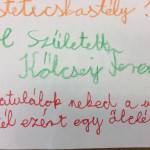 teticsbastély?
A Született
Kölcsey Feren
atulálok neked a
él ezért egy ölelé